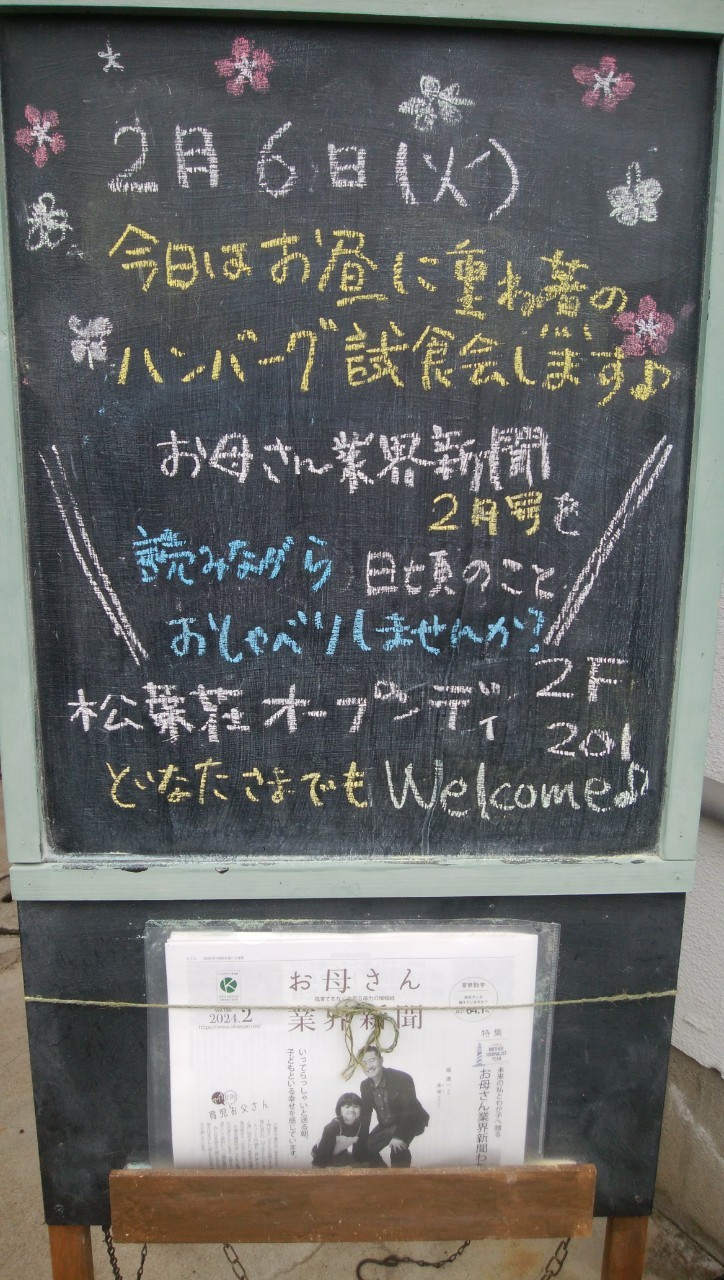 2月6日(火)
今日はお昼に重ね煮の
ハンバーグ試食会します♪
お母さん業界新聞
2月号を
読みながら 日頃のこと
おしゃべりしませんか?
松葉荘オープンディ 2F
201
どなたさまでもWelcome♪
お母さん
業界新聞
2024.2
特集
未来の私とわが子へ贈る
お母さん業界新聞
いってらっしゃいと送る朝、
子どもといる幸せを感じています。
育児お父さん